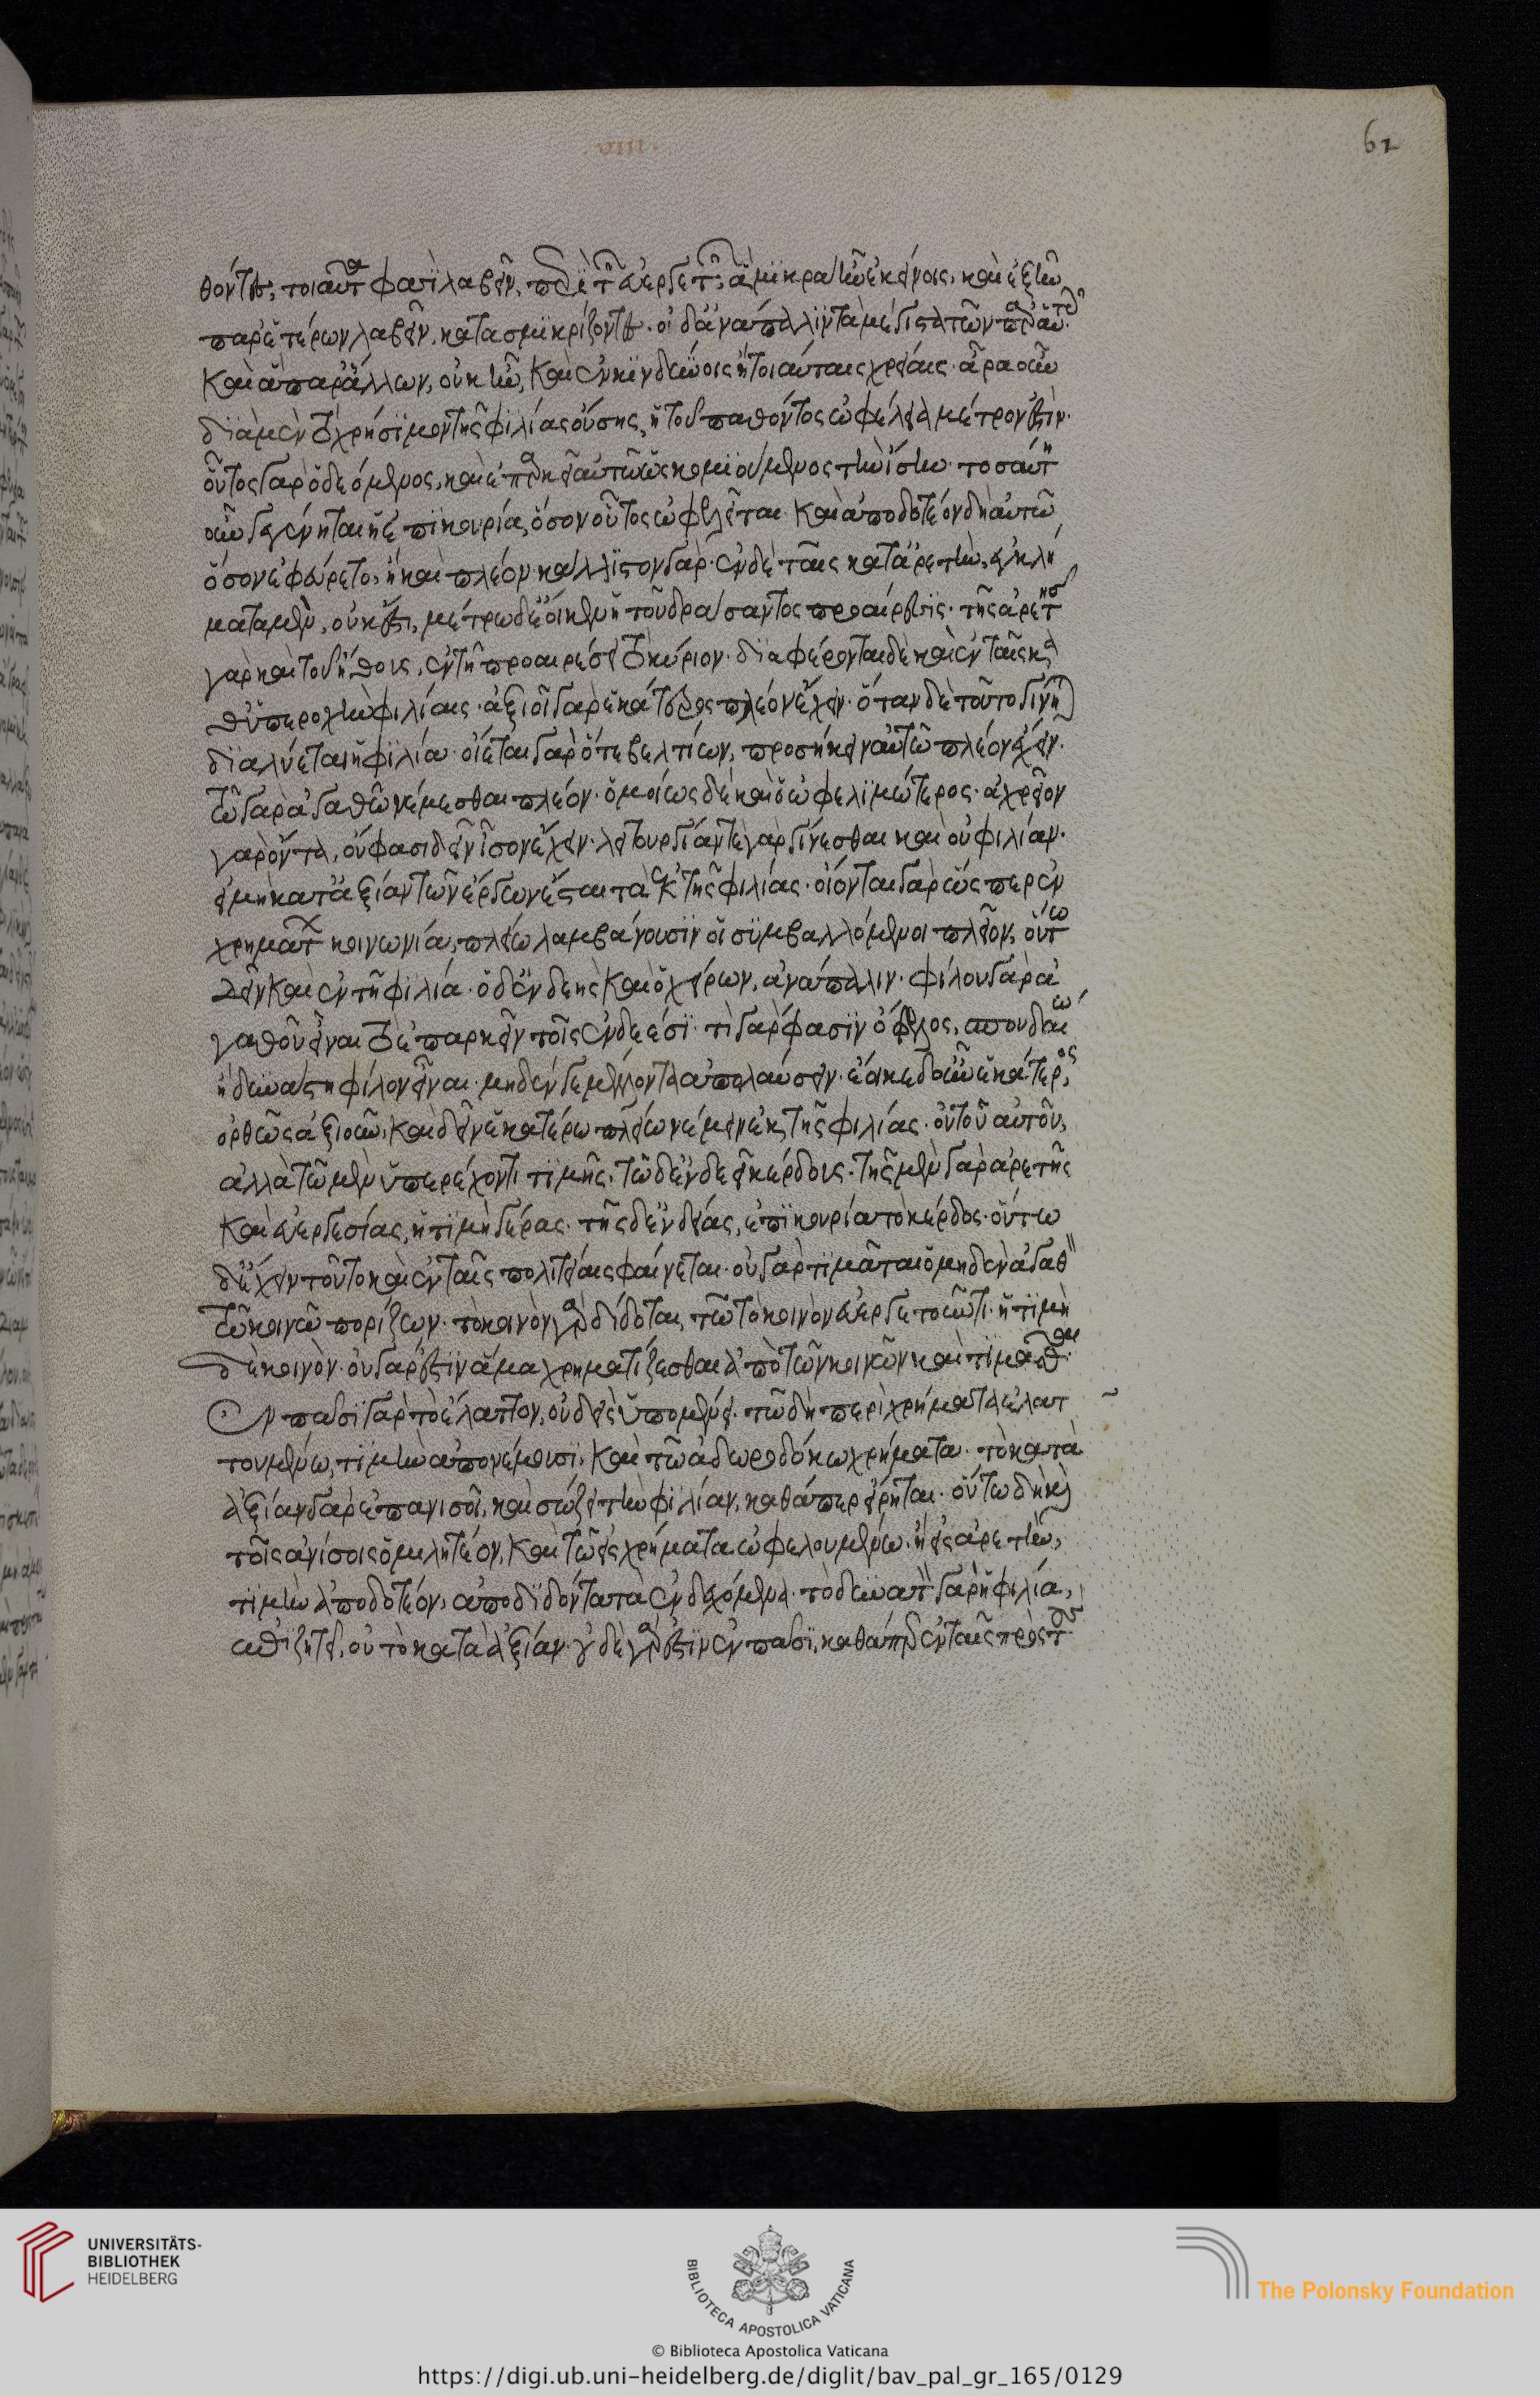 θόντες, τοιαῦτα φασὶ λαβεῖν, παρὰ τῶν εὐεργετῶν, ἃ μικρὰ ἦν ἐκείνοις, καὶ ἐξῆν
παρ' ἑτέρων λαβεῖν, κατασμικρίζοντες. οἱ δ' ἀνάπαλιν τὰ μέγιστα τῶν παρ' αὐτοῖς.
καὶ ἃ παρ' ἄλλων, οὐκ ἦν, καὶ ἐν κινδύνοις ἢ τοιαύταις χρείαις. ἆρα οὖν
διὰ μὲν τὸ χρήσιμον τῆς φιλίας οὔσης, ἡ τοῦ παθόντος ὠφέλεια μέτρον ἐστίν.
οὗτος γὰρ ὁ δεόμενος, καὶ ἐπαρκεῖ αὐτῷ ὡς κομιούμενος τὴν ἴσην. τοσαύτη
οὖν γεγένηται ἡ ἐπικουρία, ὅσον οὗτος ὠφελεῖται. καὶ ἀποδοτέον δὴ αὐτῷ
ὅσον ἐφεύρετο, ἢ καὶ πλέον. κάλλιστον γάρ. ἐν δὲ ταῖς κατ' ἀρετὴν, ἐγκλή
ματα μὲν, οὐκ ἔστι, μέτρω δὲ ἔοικεν ἡ τοῦ δράσαντος προαίρεσις. τῆς ἀρετῆς
γὰρ καὶ τοῦ ἤθους, ἐν τῇ προαιρέσει τὸ κύριον. διαφέρονται δὲ καὶ ἐν ταῖς κα
θ' ὑπεροχὴν φιλίαις. ἀξιοῖ γὰρ ἑκάτερος πλέον ἔχειν. ὅταν δὲ τοῦτο γίνη(ται)
διαλύεται ἡ φιλία. οἴεται γὰρ ὅτε βελτίων, προσήκειν αὐτῷ πλέον ἔχειν.
τῷ γὰρ ἀγαθῷ νέμεσθαι πλέον. ὁμοίως δὲ καὶ ὁ ὠφελιμώτερος. ἀχρεῖον
γὰρ ὄντα, οὔ φασι δεῖν ἴσον ἔχειν. λειτουργίαν τε γὰρ γίνεσθαι καὶ οὐ φιλίαν.
εἰ μὴ κατ' ἀξίαν τῶν ἔργων ἔσται τὰ ἐκ τῆς φιλίας. οἴονται γὰρ ὥσπερ ἐν
χρημάτων κοινωνία, πλείω λαμβάνουσιν οἱ συμβαλλόμενοι πλεῖον, οὕτω
δεῖν καὶ ἐν τῇ φιλία. ὁ δ' ἐνδεὴς καὶ ὁ χείρων, ἀνάπαλιν. φίλου γὰρ ἀ
γαθοῦ εἶναι τὸ ἐπαρκεῖν τοῖς ἐνδεέσι. τί γὰρ φασὶν ὄφελος, σπουδαίω
ἢ δυνάστη φίλον εἶναι. μηδέν γε μέλλοντα ἀπολαύσειν. ἔοικε δ' οὖν ἑκάτερος
ὀρθῶς ἀξιοῦν, καὶ δεῖν ἑκατέρω πλείω νέμειν ἐκ τῆς φιλίας. οὐ τοῦ αὐτοῦ,
ἀλλὰ τῷ μὲν ὑπερέχοντι τιμῆς. τῷ δ' ἐνδεεῖ κέρδους. τῆς μὲν γὰρ ἀρετῆς
καὶ εὐεργεσίας, ἡ τιμὴ γέρας. τῆς δ' ἐνδείας, ἐπικουρία τὸ κέρδος. οὕτω
δ' ἔχειν τοῦτο καὶ ἐν ταῖς πολιτείαις φαίνεται. οὐ γὰρ τιμᾶται ὁ μηδὲν ἀγαθὸν
τῷ κοινῷ πορίζων. τὸ κοινὸν γὰρ δίδοται, τῷ τὸ κοινὸν εὐεργετοῦντι. ἡ τιμὴ
δὲ κοινόν. οὐ γὰρ ἔστιν ἅμα χρηματίζεσθαι ἀπὸ τῶν κοινῶν καὶ τιμᾶσθαι.
ἐν πᾶσι γὰρ τὸ ἔλαττον, οὐδεὶς ὑπομένει. τῷ δὴ περὶ χρήματα ἐλατ
τουμένω, τιμὴν ἀπονέμουσι. καὶ τῷ ἀδωροδόκω χρήματα. τὸ κατὰ
ἀξίαν γὰρ ἐπανισοῖ, καὶ σώζει τὴν φιλίαν, καθάπερ εἴρηται. οὕτω δὴ καὶ
τοῖς ἀνίσοις ὁμιλητέον, καὶ τῷ εἰς χρήματα ὠφελουμένω. ἢ εἰς ἀρετὴν,
τιμὴν ἀποδοτέον, ἀποδιδόντα τὰ ἐνδεχόμενα. τὸ δυνατὸν γὰρ ἡ φιλία,
ἐπιζητεῖ, οὐ τὸ κατὰ ἀξίαν. οὐδὲ γὰρ ἔστιν ἐν πᾶσι, καθάπερ ἐν ταῖς πρὸς τοὺς
viii
62
UNIVERSITÄTS-
BIBLIOTHEK
HEIDELBERG
BIBLIOTECA APOSTOLICA VATICANA
The Polonsky Foundation
© Biblioteca Apostolica Vaticana
https://digi.ub.uni-heidelberg.de/diglit/bav_pal_gr_165/0129